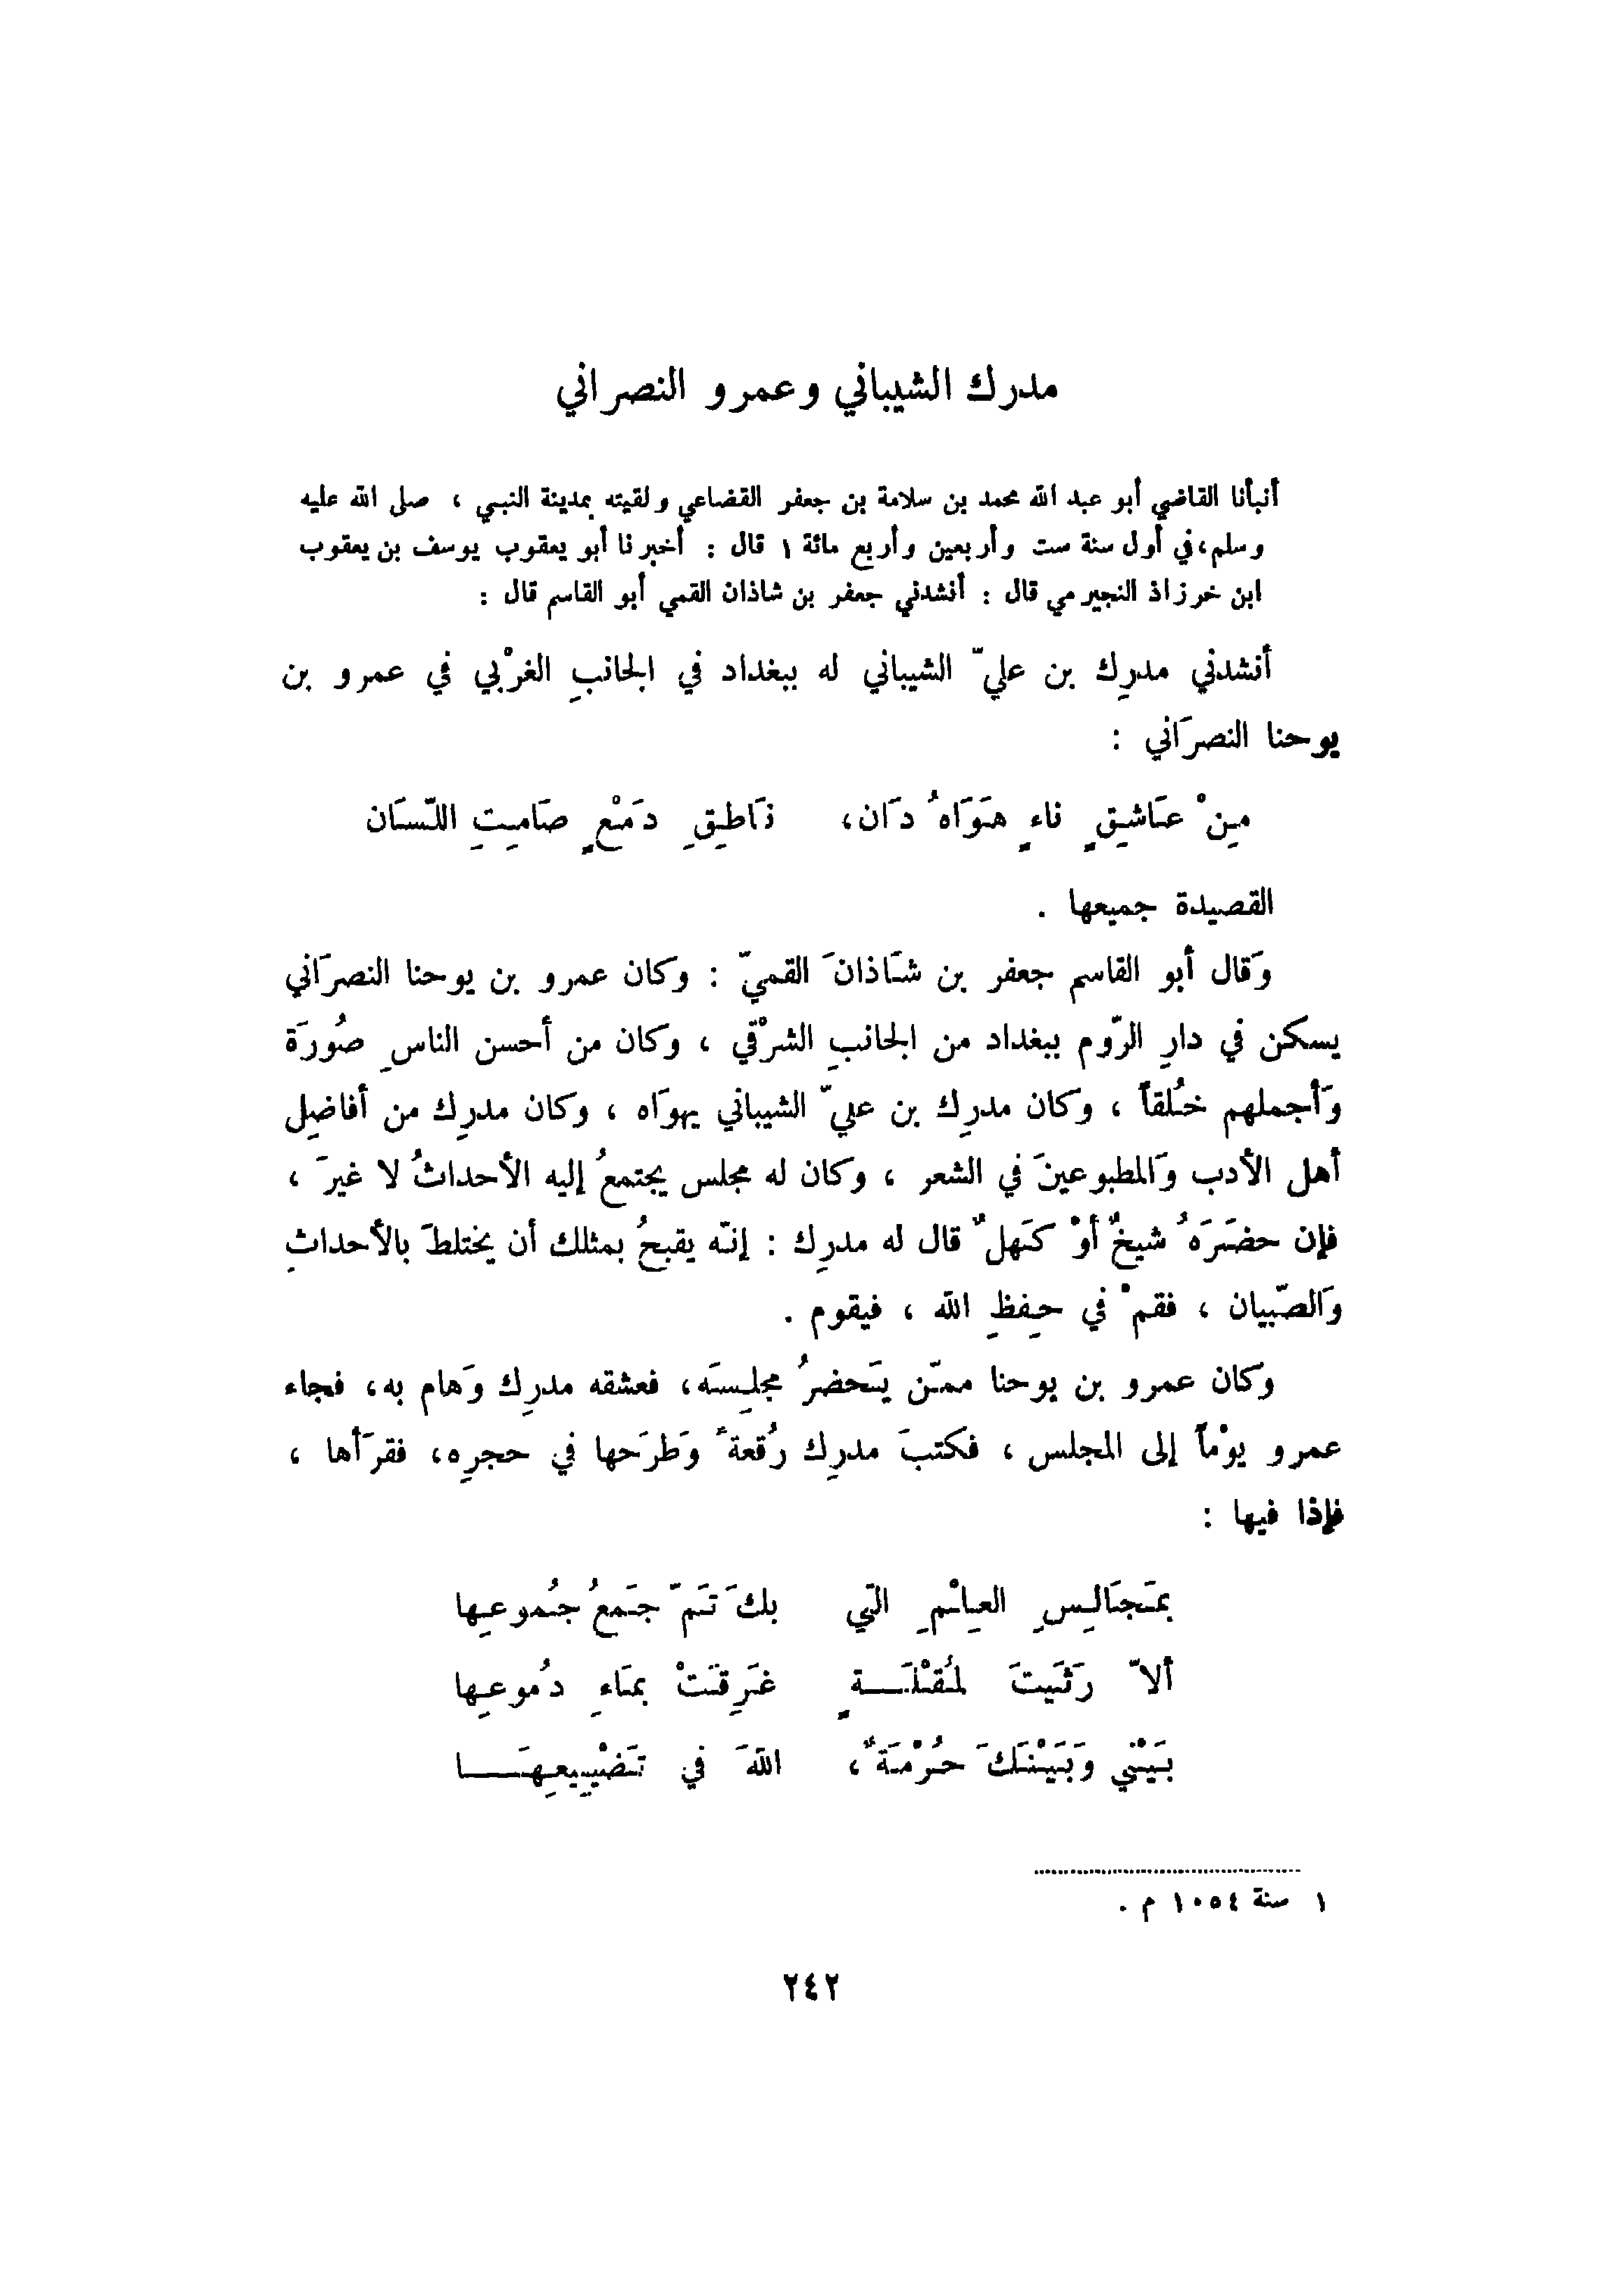 مدرك الشيباني وعمرو النصراني
أنبأنا القاضي أبو عبد الله محمد بن سلامة بن جعفر القضاعي ولقيته بمدينة النبي ، صلى الله عليه
وسلم،في أول سنة ست وأربعين وأربع مائة ١ قال : أخبرنا أبو يعقوب يوسف بن يعقوب
ابن خرزاذ النجيرمي قال : أنشدني جعفر بن شاذان القمي أبو القاسم قال :
أنشدني مدرِك بن عليّ الشيباني له ببغداد في الجانبِ الغرْبي في عمرو بن
يوحنا النصرَاني :
مِنْ عَاشِقٍ ناءٍ هَوَاهُ دَان، نَاطِقِ دَمْعٍ صَامِتِ اللّسَان
القصيدة جميعها .
وَقال أبو القاسم جعفر بن شَاذانَ القميّ : وَكان عمرو بن يوحنا النصرَاني
يسكن في دارِ الرّوم ببغداد من الجانبِ الشرْقي ، وَكان من أحسن الناسِ صُورَة
وَأجملهم خُلقاً ، وَكان مدرِك بن عليّ الشيباني يهوَاه ، وَكان مدرِك من أفاضِل
أهل الأدب وَالمطبوعينَ في الشعر ، وَكان له مجلس يجتمعُ إليه الأحداثُ لا غيرَ ،
فإن حضَرَهُ شيخٌ أوْ كَهلٌ قال له مدرِك : إنّه يقبحُ بمثلك أن يختلطَ بالأحداثِ
وَالصّبيان ، فقمْ في حِفظِ الله ، فيقوم .
وَكان عمرو بن يوحنا ممّن يَحضرُ مجلِسَه، فعشقه مدرِك وَهام به، فجاء
عمرو يوْماً إلى المجلس ، فكتبَ مدرِك رُقعةً وَطرَحها في حجرِه، فقرَأها ،
فإذا فيها :
بمَجَالِسِ العِلْمِ الّتي بِكَ تَمّ جَمعُ جُموعِها
ألاّ رَثَيتَ لمُقْلَـــةٍ غَرِقَتْ بمَاءِ دُموعِها
بَيْني وَبَيْنَكَ حُرْمَةٌ، اللهَ في تَضْيِيعِهَــــا
١ سنة ١٠٥٤ م .
٢٤٢